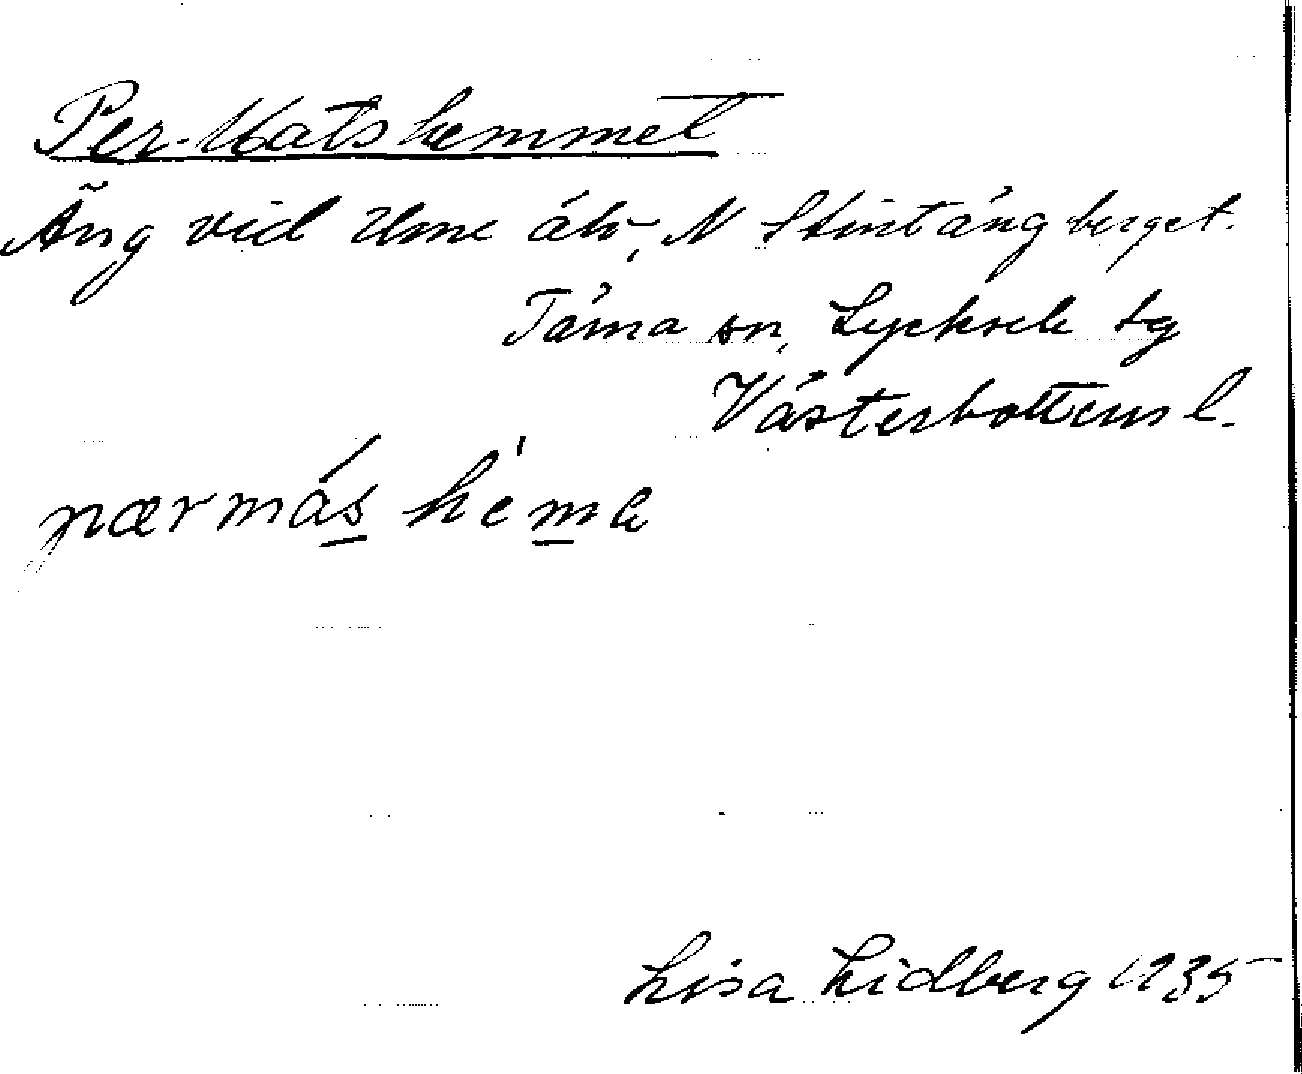 Per-Matshemmet
Äng vid Ume älv, N Stintångberget.
Tärna sn, Lycksele tg
Västerbottens l.
pærmás héme
Lisa Lidberg 1935